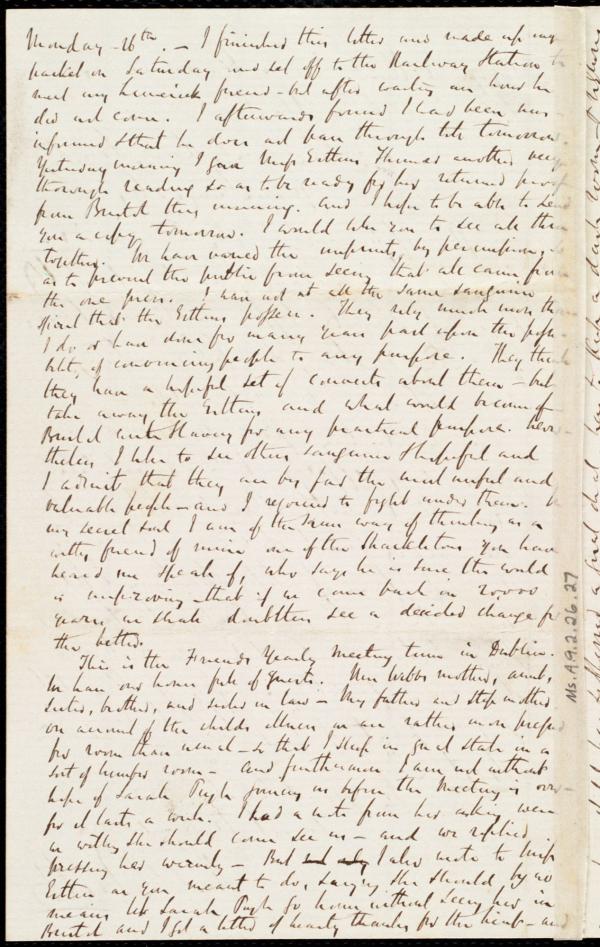 Monday 26th. — I finished this letter and made up my
packet on Saturday and set off to the Railway Station to
meet my Limerick friend - but after waiting an hour he
did not come. I afterwards found I had been mis-
informed & that he does not pass through till tomorrow.
Yesterday morning I gave Miss Estlin's Thomas another very
thorough reading so as to be ready for her returned proof
from Bristol this morning. and I hope to be able to send
you a copy tomorrow. I would like you to see all three
together. We have varied the imprints, by permission, so
as to prevent the public from seeing that all came from
the one press. I am not at all the same sanguine
spirit that the Estlins possess. They rely much more than
I do, or have done for many years past upon the possi-
bility of convincing people to any purpose. They think
they have a hopeful set of converts about them - but
take away the Estlins and what would become of
Bristol anti Slavery for any practical purpose. Never-
theless I like to see others sanguine & hopeful and
I admit that they are by far the most useful and
valuable people - and I rejoiced to fight under them. In
my secret soul I am of the same way of thinking as a
witty friend of mine one of the Shackletons you have
heard me speak of, who says he is sure the world
is improving - that if we come back in 20,000
years we shall doubtless see a decided change for
the better.
This is the Friends Yearly Meeting time in Dublin.
We have our house full of guests. Wm Webbs mother, aunt,
sister, brother, and sister in law - My father and step mother
on account of the childs illness we are rather more pressed
for room than usual - so that I sleep in great state in a
sort of lumber room - and furthermore I am not without
hope of Sarah Pugh joining us before the Meeting is over -
for it lasts a week. I had a note from her asking were
we willing she should come see us - and we replied
pressing her warmly - But I also wrote to Miss
Estlin as you meant to do, saying she should by no
means let Sarah Pugh go home without seeing her in
Bristol and I got a letter of hearty thanks for the hint - and
Ms. A.9.2.26.27